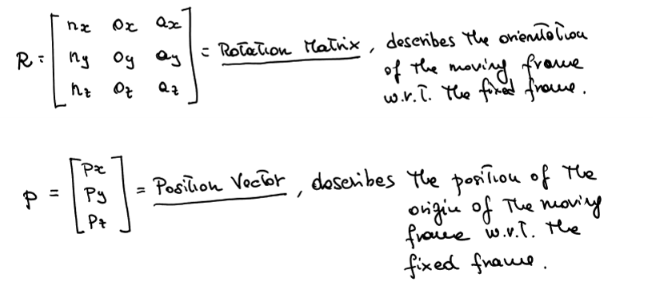 R = [ nx ox ax
ny oy ay
nz oz az ] = Rotation Matrix, describes the orientation
of the moving frame
w.r.t. the fixed frame.
p = [ px
py
pz ] = Position Vector, describes the position of the
origin of the moving
frame w.r.t. the
fixed frame.